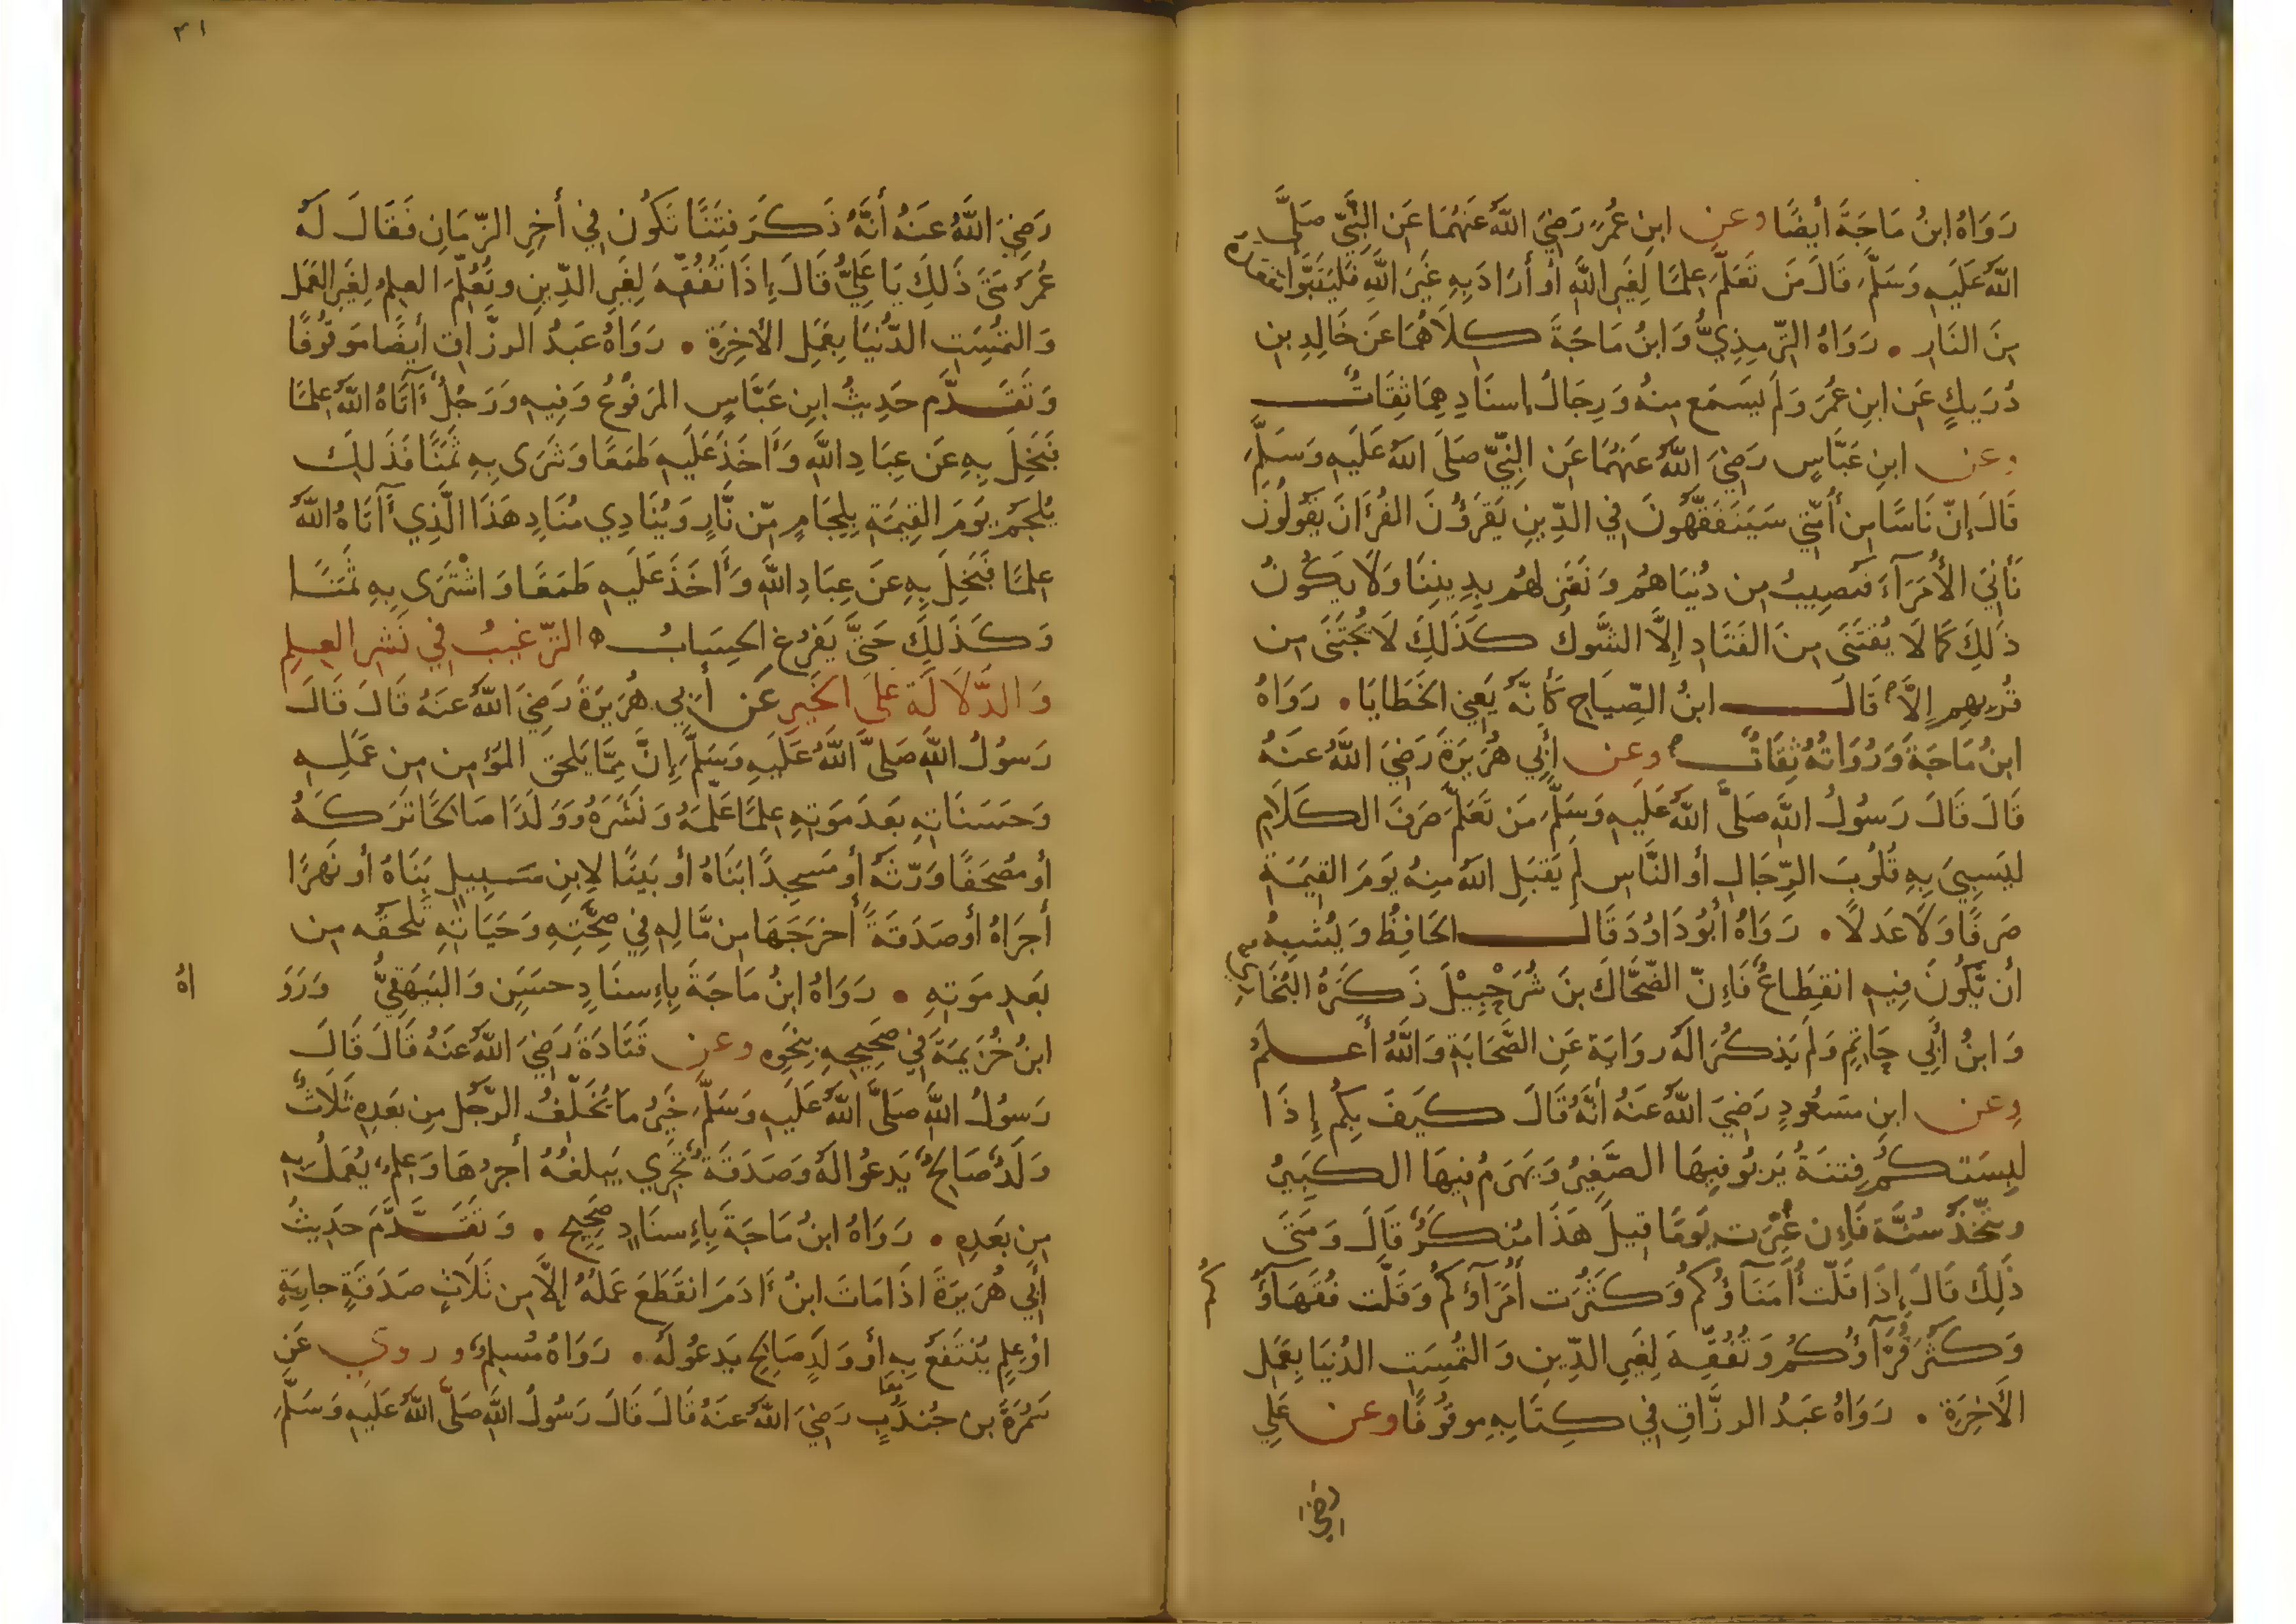 رَوَاهُ ابنُ مَاجَةَ أيضًا وعن ابنِ عُمَرَ رَضِيَ اللَّهُ عَنهُمَا عَنِ النَّبِيِّ صَلَّى
اللَّهُ عَلَيهِ وَسَلَّمَ قَالَ مَن تَعَلَّمَ عِلمًا لِغَيرِ اللَّهِ أو أَرَادَ بِهِ غَيرَ اللَّهِ فَليَتَبَوَّا مقعده
مِنَ النَّارِ . رَوَاهُ التِّرمِذِيُّ وَابنُ مَاجَةَ كِلَاهُمَا عَن خَالِدِ بنِ
دُرَيكٍ عَنِ ابنِ عُمَرَ وَلَم يَسمَع مِنهُ وَرِجَالُ إسنَادِهِمَا ثِقَاتٌ
وعن ابنِ عَبَّاسٍ رَضِيَ اللَّهُ عَنهُمَا عَنِ النَّبِيِّ صَلَّى اللَّهُ عَلَيهِ وَسَلَّمَ
قَالَ إنّ نَاسًا مِن أُمَّتِي سَيَتَفَقَّهُونَ فِي الدِّينِ يَقرَؤُنَ القُرءَانَ يَقُولُونَ
نَأتِيَ الأُمَرَآءَ فَنُصِيبُ مِن دُنيَاهُم وَنَعتَزِلُهُم بِدِينِنَا وَلَا يَكُونُ
ذَلِكَ كَمَا لَا يُقتَنَى مِنَ القَتَادِ إِلَّا الشَّوكُ كَذَلِكَ لَا يُجتَنَى مِن
قُربِهِم إِلَّا قَالَ ابنُ الصِّيَاحِ كَأَنَّهُ يَعنِي الخَطَايَا . رَوَاهُ
ابنُ مَاجَةَ وَرُوَاتُهُ ثِقَاتٌ وعن أَبِي هُرَيرَةَ رَضِيَ اللَّهُ عَنهُ
قَالَ قَالَ رَسُولُ اللَّهِ صَلَّى اللَّهُ عَلَيهِ وَسَلَّمَ مَن تَعَلَّمَ صَرفَ الكَلَامِ
لِيَسبِيَ بِهِ قُلُوبَ الرِّجَالِ أوِ النَّاسِ لَم يَقبَلِ اللَّهُ مِنهُ يَومَ القِيمَةِ
صَرفًا وَلَا عَدلًا . رَوَاهُ أَبُو دَاوُدَ قَالَ الحَافِظُ وَيُشبِهُ
أن يَّكُونَ فِيهِ انقِطَاعٌ فَإِنّ الضَّحَّاكَ بنَ شُرَحْبِيْلَ ذَكَرَهُ البُخَارِي
وَابنُ أَبِي حَاتِمٍ وَلَم يَذكُرَا لَهُ رِوَايَة عَنِ الصَّحَابَةِ وَاللَّهُ أَعلَمُ
وعن ابنِ مَسعُودٍ رَضِيَ اللَّهُ عَنهُ أنَّهُ قَالَ كَيفَ بِكُم إِذَا
لبِسَتكُم فِتنَةٌ يَربُو فِيهَا الصَّغِيرُ وَيَهرَمُ فِيهَا الكَبِيرُ
وتتّخذُ سنّةً فَإِن غُيِّرَت يَومًا قِيلَ هَذَا مُنكَرٌ قَالَ وَمَتَى
ذَلِكَ قَالَ إِذَا قَلَّت أُمَنَآؤُكُم وَكَثُرَت أُمَرَآؤُكُم وَقَلَّت فُقَهَآؤُ
كُم
وَكَثُرَ قُرَّآؤُكُم وَتُفُقِّهَ لِغَيرِ الدِّينِ وَالتُمِسَتِ الدُنيَا بِعَمَلِ
الأَخِرَةِ . رَوَاهُ عَبدُ الرزَّاقِ فِي كِتَابِهِ موقُوفًا وعن عَلِي
رَضِيَ
٣١
رَضِيَ اللَّهُ عَنهُ أَنَّهُ ذَكَرَ فِتَنًا تَكُون فِي أخِرِ الزّمَانِ فَقَالَ لَهُ
عُمَرُ مَتَى ذَلِكَ يَا عَلِيُّ قَالَ إِذَا تُفُقِّهَ لِغَيرِ الدِّينِ وتُعُلِّمَ العِلمُ لِغَيرِ العَمَلِ
وَالتُمِسَتِ الدُّنيَا بِعَمَلِ الأَخِرَةِ . رَوَاهُ عَبدُ الرزَّاقِ أيضًا مَوقُوفًا
وَتَقَدَّم حَدِيثُ ابنِ عَبَّاسٍ المَرفُوعُ وَفِيهِ وَرَجُلٌ ءَآتَاهُ اللَّهُ عِلمًا
فَبَخِلَ بِهِ عَن عِبَادِ اللَّهِ وَأَخَذَ عَلَيهِ طَمَعًا وَشَرَى بِهِ ثَمَنًا فَذَلِكَ
يُلجَمُ يَومَ القِيمَةِ بِلِجَامٍ مِّن نَّارٍ وَيُنَادِي مُنَادٍ هَذَا الَّذِي ءَآتَاهُ اللَّهُ
عِلمًا فَبَخِلَ بِهِ عَن عِبَادِ اللَّهِ وَأَخَذَ عَلَيهِ طَمَعًا وَاشْتَرَى بِهِ ثَمَنًا
وَكَذَلِكَ حَتَّى يَفرُغَ الحِسَابُ ه التَّرغِيبُ فِي نَشرِ العِلمِ
وَالدَّلَالَةِ عَلَى الخَيرِ عَن أَبِي هُرَيرَةَ رَضِيَ اللَّهُ عَنهُ قَالَ قَالَ
رَسُولُ اللَّهِ صَلَّى اللَّهُ عَلَيهِ وَسَلَّمَ إِنَّ مِمَّا يَلحَق المُؤمِن مِن عَمَلِهِ
وَحَسَنَاتِهِ بَعدَ مَوتِهِ عِلمًا عَلَّمَهُ وَنَشَرَهُ وَوَلَدًا صَالحًا تَرَكَهُ
أو مُصحَفًا وَرّثَهُ أو مَسجِدًا ابَنَاهُ أو بَيتًا لِابنِ سَبِيلٍ بَنَاهُ أو نَهرًا
أجرَاهُ أو صَدَقَةً أخرَجَهَا مِن مَّالِهِ فِي صِحَّتِهِ وَحَيَاتِهِ تَلحقُه مِن
بَعدِ مَوتِهِ . رَوَاهُ ابنُ مَاجَةَ بِإِسنَادٍ حَسَنٍ وَالبَيهَقِيُّ وَرَوَ
اهُ
ابنُ خُزَيمَةَ فِي صَحِيحِهِ بِنَحوِهِ وعن قَتَادَةَ رَضِيَ اللَّهُ عَنهُ قَالَ قَالَ
رَسُولُ اللَّهِ صَلَّى اللَّهُ عَلَيهِ وَسَلَّمَ خَيرُ مَا يُخَلِّفُ الرّجُل مِن بَعدِهِ ثَلَاثٌ
وَلَدٌ صَالِحٌ يَدعُوا لَهُ وَصَدَقَةٌ تَجرِي يَبلغُهُ أجرُهَا وَعِلمٌ يُعمَلُ بِهِ
مِن بَعدِهِ . رَوَاهُ ابنُ مَاجَةَ بِإِسنَادٍ صَحِيحٍ . وَتَقَدَّمَ حَدِيثُ
أبِي هُرَيرَةَ اذَا مَاتَ ابنُ ءَادَمَ انقَطَعَ عَمَلُهُ إلَّا مِن ثَلَاثٍ صَدَقَةٍ جارِيَةٍ
أو عِلمٍ يُنتَفَعُ بِهِ أو وَلَدٍ صَالِحٍ يَدعُو لَهُ . رَوَاهُ مُسلِمٌ وروي عَن
سَمُرَةَ بن جُندُبٍ رَضِيَ اللَّهُ عَنهُ قَالَ قَالَ رَسُولُ اللَّهِ صَلَّى اللَّهُ عَلَيهِ وَسَلَّمَ